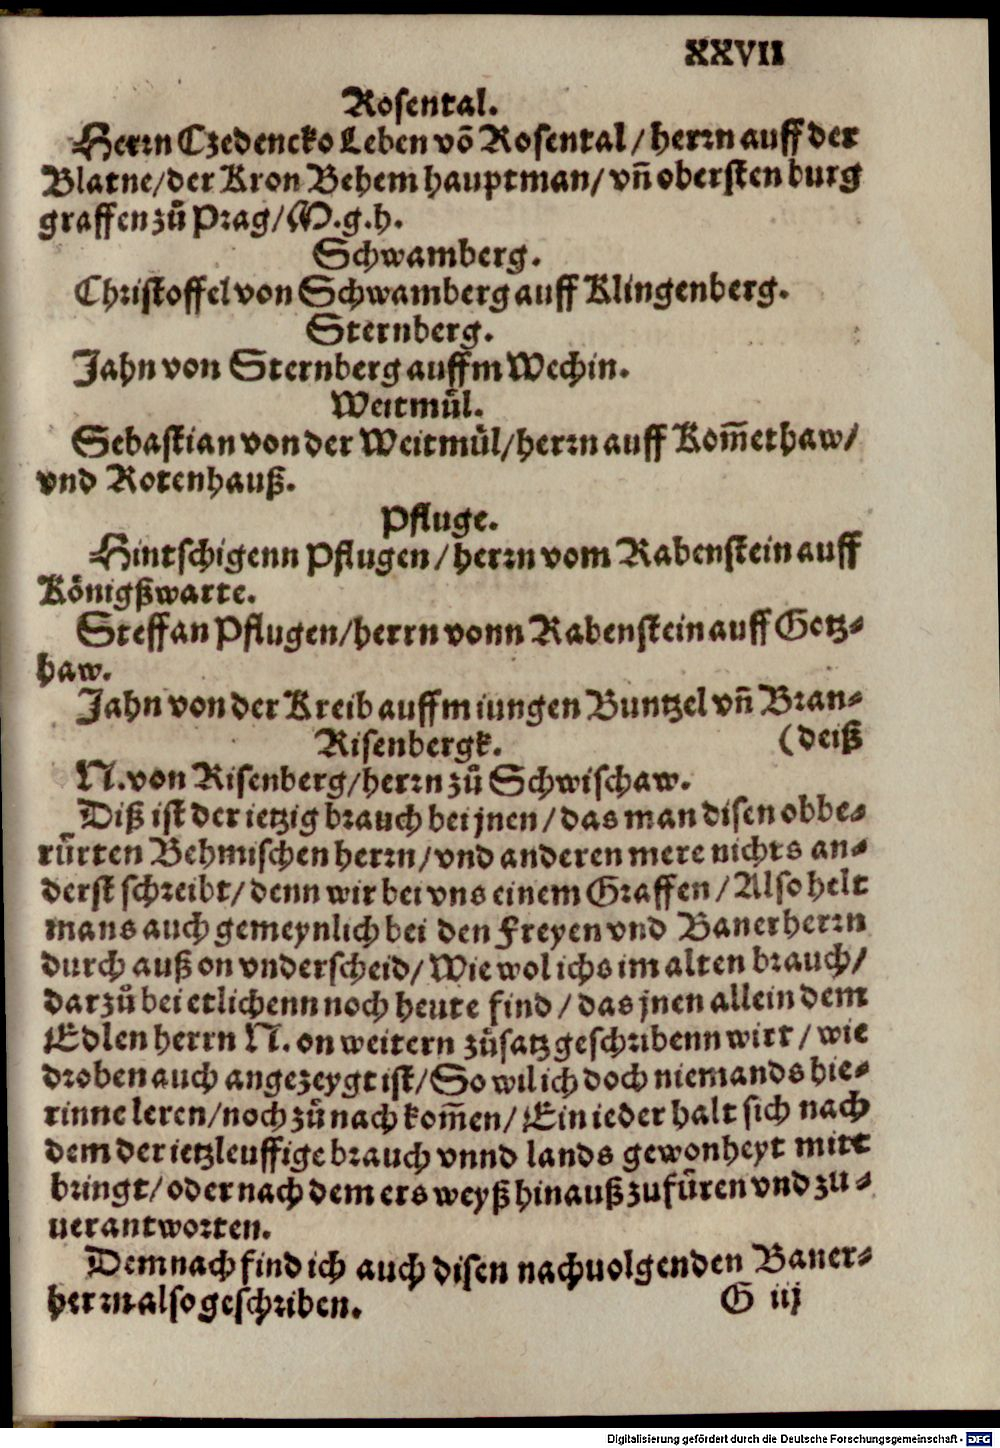 XXVII
Rosental.
Herrn Czedencko Leben võ Rosental / herrn auff der
Blatne/der Kron Behem hauptman/ vñ obersten burg
graffen zů Prag/M.g.h.
Schwamberg.
Christoffel von Schwamberg auff Klingenberg.
Sternberg.
Jahn von Sternberg auffm Wechin.
Weitmůl.
Sebastian von der Weitmůl/herrn auff Kom̃ethaw/
vnd Rotenhauß.
Pfluge.
Hintschigenn Pflugen/herrn vom Rabenstein auff
Königßwarte.
Steffan Pflugen/herrn vonn Rabenstein auff Gotz⸗
haw.
Jahn von der Kreib auffm iungen Buntzel vñ Bran⸗
Risenbergk. (deiß
N. von Risenberg/herrn zů Schwischaw.
Diß ist der ietzig brauch bei jnen/das man disen obbe⸗
rürten Behmischen herrn/vnd anderen mere nichts an⸗
derst schreibt/denn wir bei vns einem Graffen/Also helt
mans auch gemeynlich bei den Freyen vnd Banerherrn
durch auß on vnderscheid/Wie wol ichs im alten brauch/
darzů bei etlichenn noch heute find/das jnen allein dem
Edlen herrn N. on weitern zůsatz geschribenn wirt/wie
droben auch angezeygt ist/So wil ich doch niemands hie⸗
rinne leren/noch zů nach kom̃en/Ein ieder halt sich nach
dem der ietzleuffige brauch vnnd lands gewonheyt mitt
bringt/oder nach dem ers weyß hinauß zufüren vnd zu⸗
uerantworten.
Demnach find ich auch disen nachuolgenden Baner⸗
herrn also geschriben. G iij
Digitalisierung gefördert durch die Deutsche Forschungsgemeinschaft - DFG